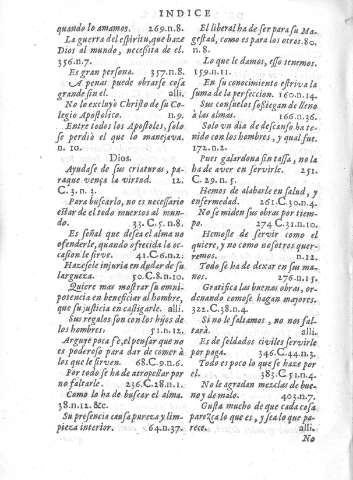 INDICE
quando lo amamos. 269.n.8.
La guerra del espiritu, que haze
Dios al mundo, necesita de el.
356.n.7.
Es gran persona. 357.n.8.
A penas puede obrarse cosa
grande sin el. alli.
No lo excluyò Christo de su Co-
legio Apostolico. n.9.
Entre todos los Apostoles, solo
se perdiò el que lo manejava.
n. 10.
Dios.
Ayudase de sus criaturas, pa-
raque vença la virtud. 12.
C. 3. n. 3.
Para buscarlo, no es necessario
estar de el todo muertos al mun-
do. 33.C.5.n.8.
Es señal que desea el alma no
ofenderle, quando ofrecida la oc-
casion le sirve. 41.C.6.n.2.
Hazesele injuria en dudar de su
largueza. 50.C.8.n.10.
Quiere mas mostrar su omni-
potencia en beneficiar al hombre,
que su justicia en castigarle. alli.
Sus regalos son con los hijos de
los hombres. 51.n.12.
Arguye poca fè, el pensar que no
es poderoso para dar de comer à
los que le sirven. 68.C.9.n.6.
Por todo se ha de atropellar por
no faltarle. 236.C.28.n.1.
Como lo ha de buscar el alma.
38.n.12.&c.
Su presencia causa pureza y lim-
pieza interior. 64.n.37.
El liberal ha de ser para su Ma-
gestad, como es para los otros. 80.
n.8.
Lo que le damos, esso tenemos.
159.n.11.
En su conocimiento estriva la
suma de la perfeccion. 160.n.14.
Sus consuelos sossiegan de lleno
à las almas. 166.n.36.
Solo un dia de descanso ha te-
nido con los hombres, y qual fue.
172.n.2.
Pues galardona sin tassa, no la
ha de aver en servirle. 251.
C. 29. n. 5.
Hemos de alabarle en salud, y
enfermedad. 261.C.30.n.4.
No se miden sus obras por tiem-
po. 274.C.31.n.10.
Hemosle de servir como el
quiere, y no como nosotros quer-
remos. n.12.
Todo se ha de dexar en sus ma-
nos. 276.n.15.
Gratifica las buenas obras, or-
denando cemose hagan mayores.
322.C.38.n.4.
Si no le faltamos, no nos fal-
tarà. alli.
Es de soldados civiles servirle
por paga. 346.C.44.n.3.
Todo es poco lo que se haze por
el. 383.C.51.n.4.
No le agradan mezclas de bue-
no y de malo. 403.n.7.
Gusta mucho de que cada cosa
parezca lo que es, y sea lo que pa-
rece. alli.
No